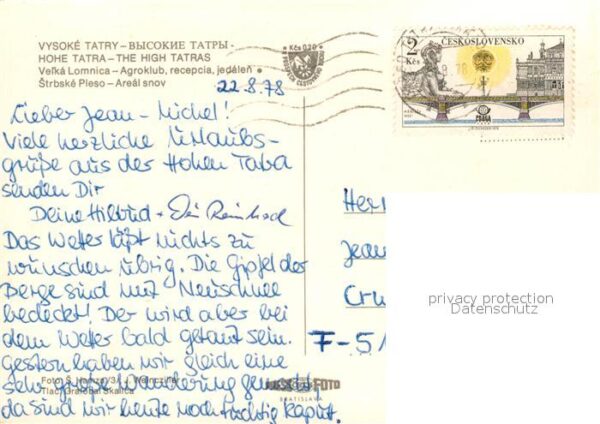 VYSOKÉ TATRY – ВЫСОКИЕ ТАТРЫ -
HOHE TATRA – THE HIGH TATRAS
Veľká Lomnica – Agroklub, recepcia, jedáleň
Štrbské Pleso – Areál snov
Kčs 0,20
2
Kčs
ČESKOSLOVENSKO
PRAGA
22.8.78
Lieber Jean-Michel!
Viele herzliche Urlaubs-
grüße aus der Hohen Tatra
senden Dir
Deine Hiltrud + Dein Reinhard
Das Wetter läßt nichts zu
wünschen übrig. Die Gipfel der
Berge sind mit Neuschnee
bedeckt! Der wird aber bei
dem Wetter bald getaut sein.
Gestern haben wir gleich eine
sehr große Wanderung gemacht
da sind wir heute noch tüchtig kaputt.
Herr
Jean
Cru
F-51
privacy protection
Datenschutz
Tlač Grafobal Skalica
FOTO
BRATISLAVA